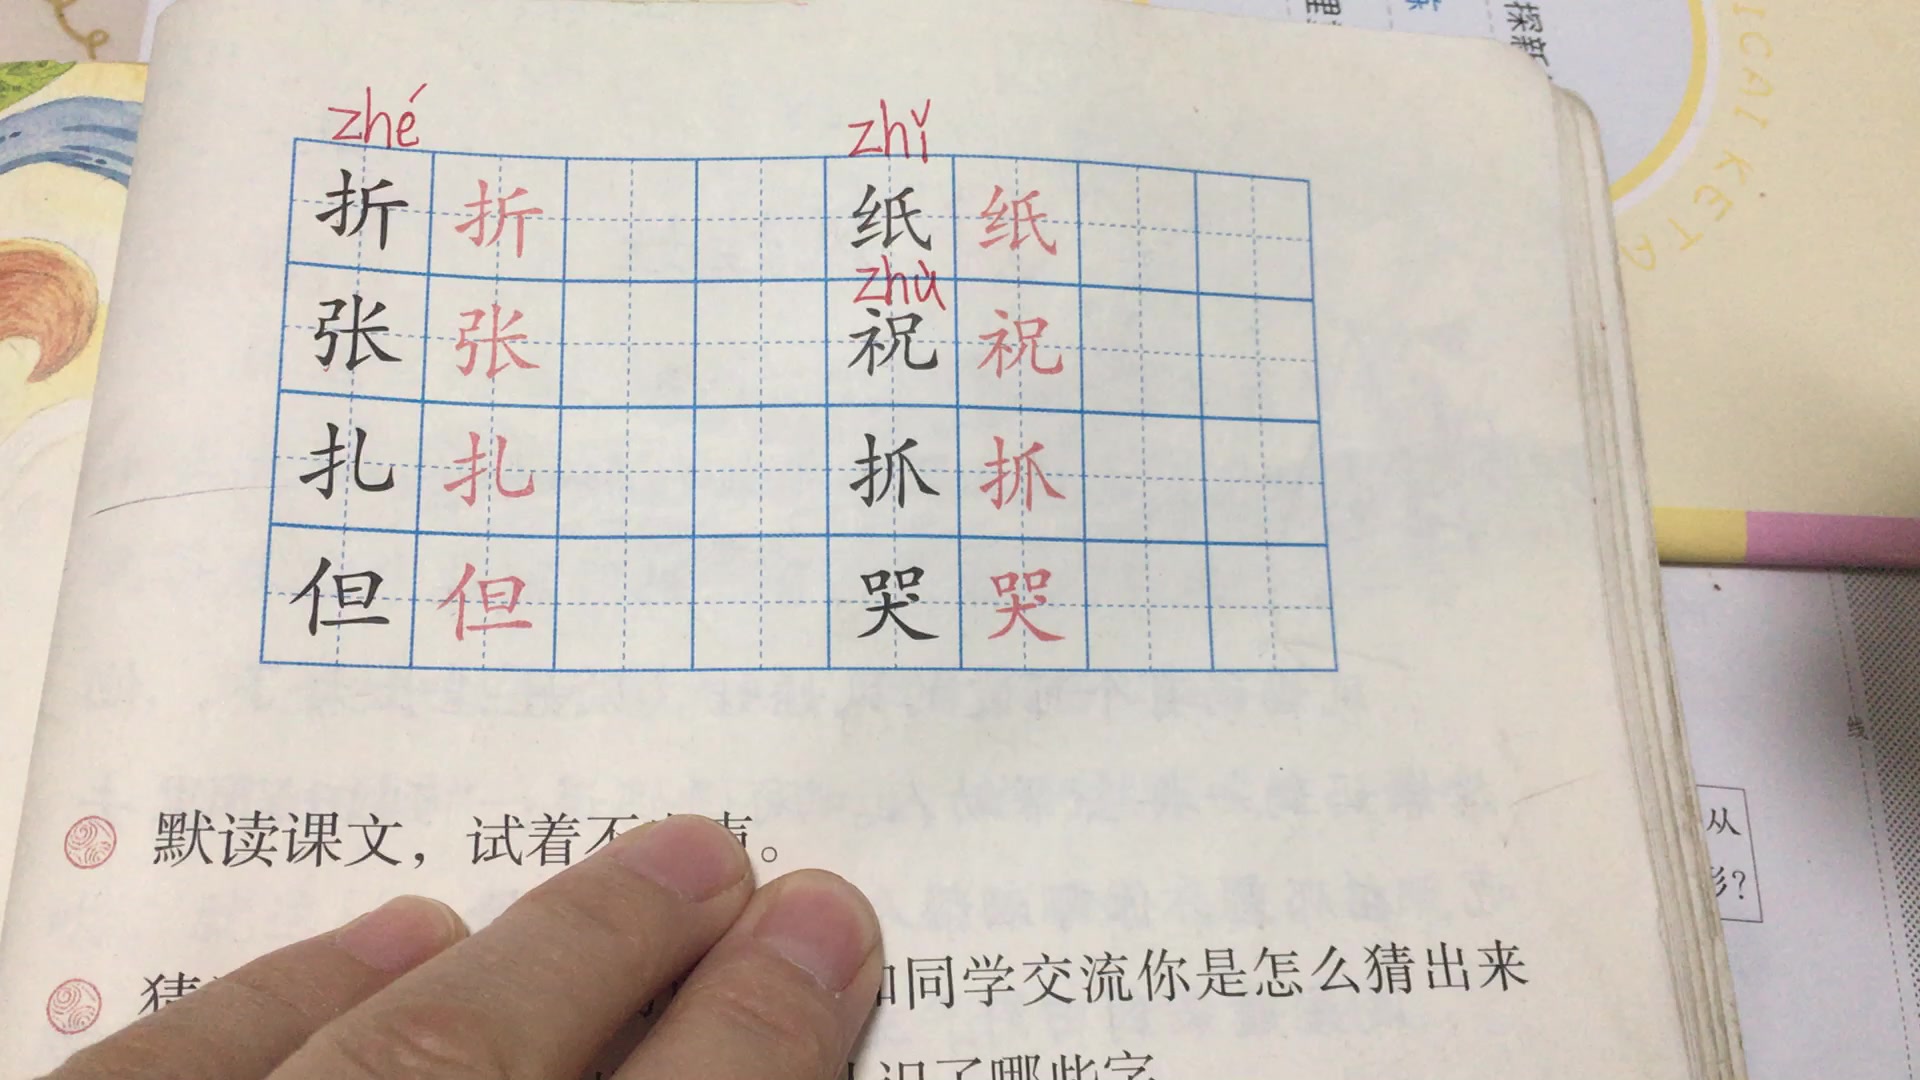 zhé zhǐ
折 折 纸 纸
zhù
张 张 祝 祝
扎 扎 抓 抓
但 但 哭 哭
默读课文，试着不出声。
猜 和同学交流你是怎么猜出来
识了哪些字
从
形？
线
ICAL KETA